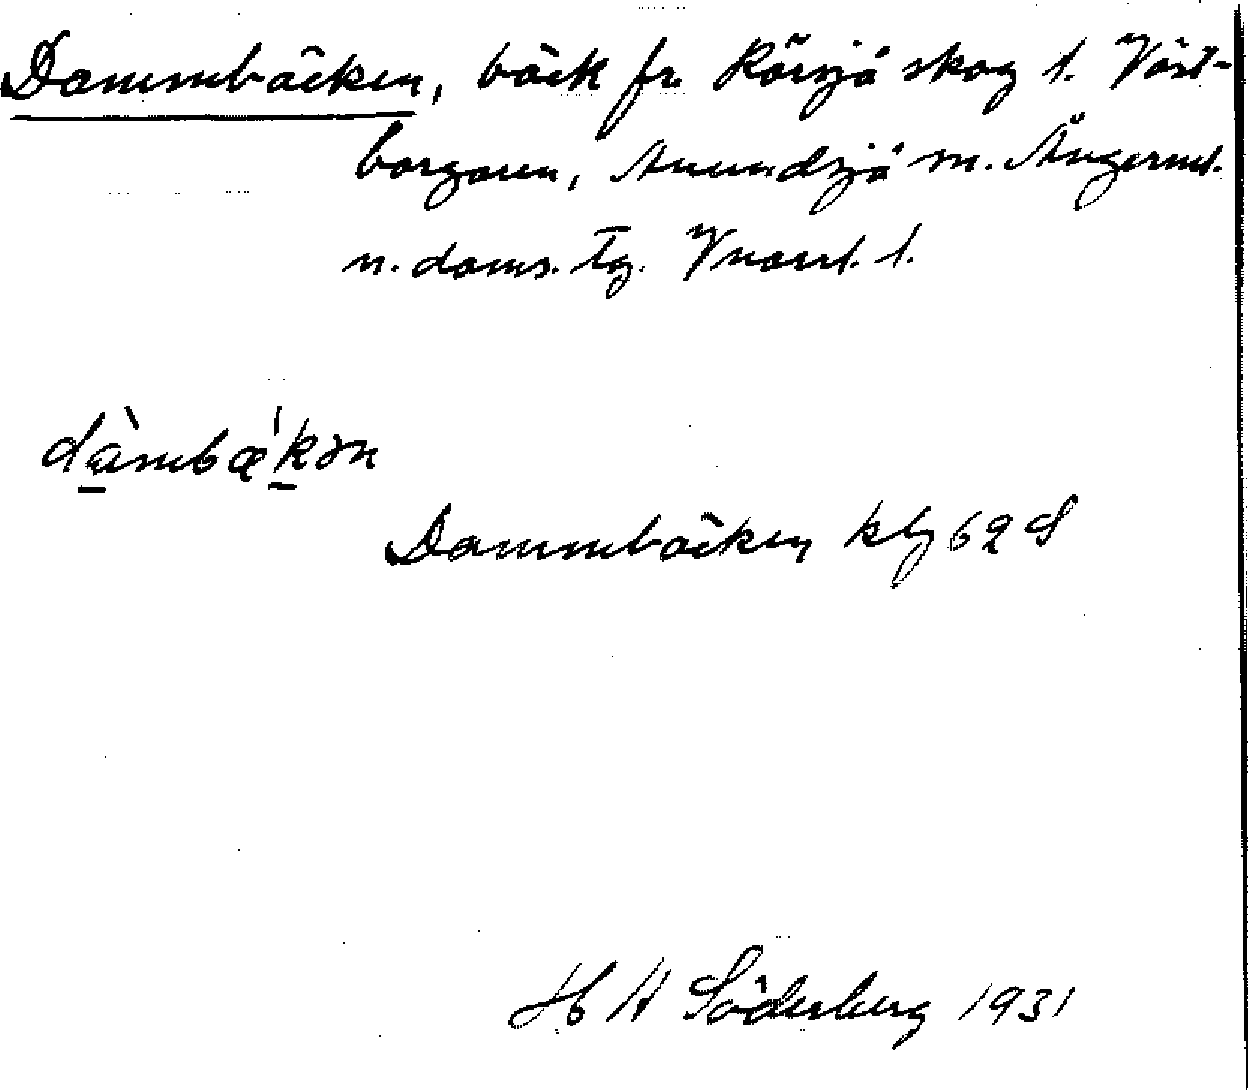 Dammbäcken, bäck fr. Rörsjö skog t. Väst-
borgaren, Anundsjö sn. Ångerml.
n. doms. tg. Vnorrl. l.
dàmbæ'kən
Dammbäcken kbg 62 S
H A Söderberg 1931